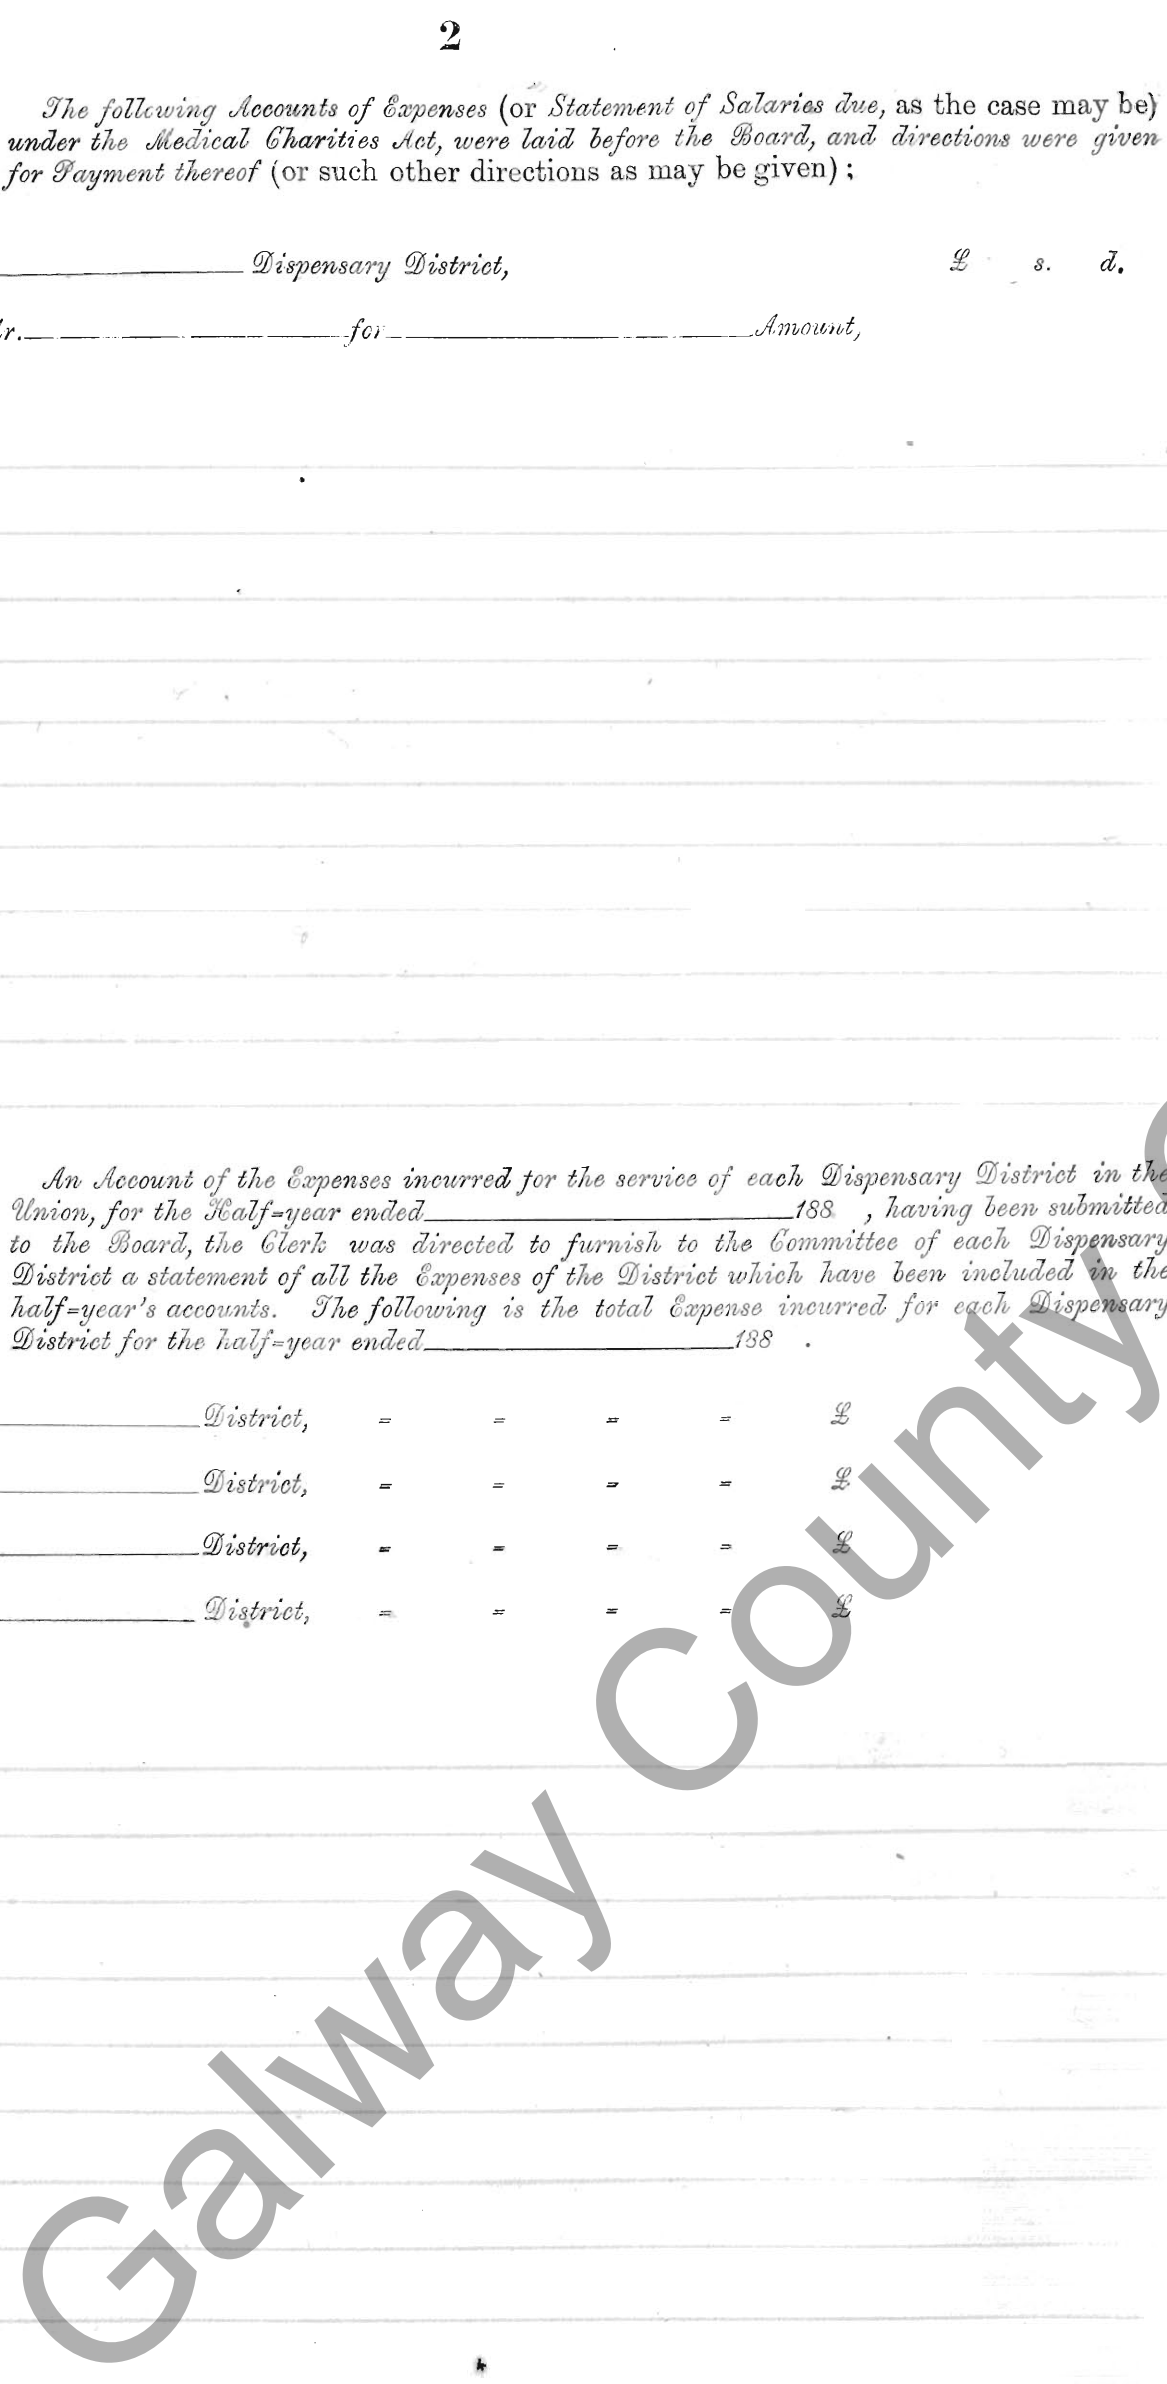 2
The following Accounts of Expenses (or Statement of Salaries due, as the case may be)
under the Medical Charities Act, were laid before the Board, and directions were given
for Payment thereof (or such other directions as may be given) ;
Dispensary District, £ s. d.
r. for Amount,
An Account of the Expenses incurred for the service of each Dispensary District in the
Union, for the Half=year ended 188 , having been submitted
to the Board, the Clerk was directed to furnish to the Committee of each Dispensary
District a statement of all the Expenses of the District which have been included in the
half=year's accounts. The following is the total Expense incurred for each Dispensary
District for the half=year ended 188 .
District, = = = = £
District, = = = = £
District, = = = = £
District, = = = = £
Galway County